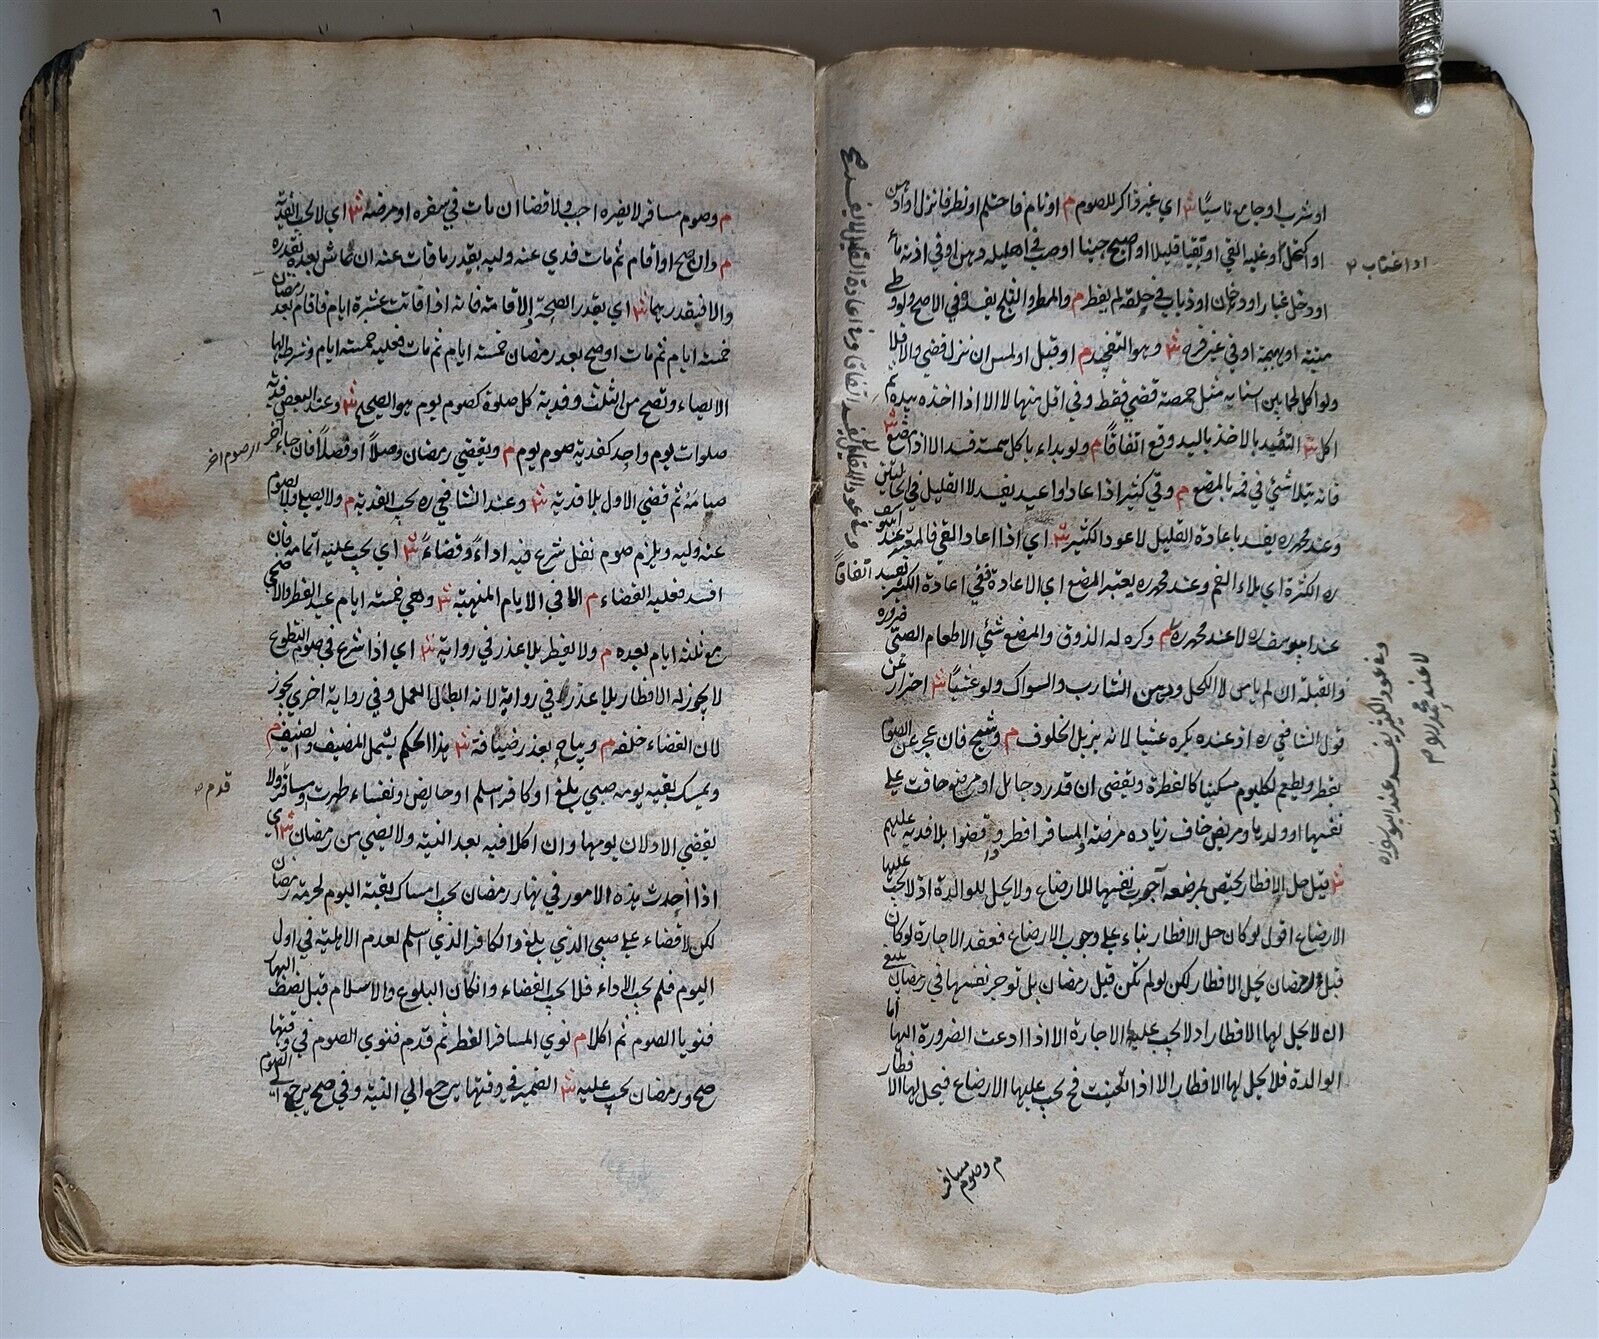 او شرب او جامع ناسيا ش اي غير ذاكر للصوم م او نام فاحتلم او نظر فانزل او ادهن
او اكتحل او غلبه القي او تقيا قليلا او اصبح جنبا او صب في احليله دهن او في اذنه ماء
او دخل غبار او دخان او ذباب في حلقه لم يفطر م والمطر والثلج يفسد في الاصح ولو وطى
ميتة او بهيمة او في غير فرج ش وهو التفخيذ م او قبل او لمس ان نزل قضي والا فلا
ولو اكل لحما بين اسنانه مثل حمصة قضي فقط وفي اقل منها لا الا اذا اخذه بيده ثم
اكل ش التقييد بالاخذ باليد وقع اتفاقا م ولو بداء باكل سمسة فسد الا اذا مضغ ش
فانه يتلاشي في فمه بالمضغ م وقي كثير اذا عاد او اعيد يفسد لا القليل في الحالتين
وعند محمد ره يفسد باعادة القليل لا عود الكثير ش اي اذا اعاد القي فالمعتبر عند ابي يوسف
ره الكثرة اي ملاء الفم وعند محمد ره يعتبر الصنع اي الاعادة ففي اعادة الكثير يفسد اتفاقا
عند ابي يوسف ره لا عند محمد ره م وكره له الذوق والمضغ شئي الا طعام الصبي ضروره
والقبلة ان لم يامن لا الكحل ودهن الشارب والسواك ولو عشيا ش احتراز عن
قول الشافعي ره اذ عنده يكره عشيا لانه يزيل الخلوف م وشيخ فان عجز عن الصوم
يفطر ويطعم لكل يوم مسكينا كالفطرة ويقضي ان قدر وحامل او مرضع خافت على
نفسها او ولدها ومريض خاف زيادة مرضه والمسافر افطروا وقضوا بلا فدية عليهم
ش قيل حل الافطار يختص بمرضعة آجرت نفسها للارضاع ولا يحل للوالدة اذ لا يجب عليها
الارضاع اقول لو كان حل الافطار بناء على وجوب الارضاع فعقد الاجارة لو كان
قبل رمضان يحل الافطار لكن لو لم تكن قبل رمضان بل توجر نفسها في رمضان ينبغي
ان لا يحل لها الافطار اذ لا يجب عليها الاجارة الا اذا ادعت الضرورة اليها اما
الوالدة فلا يحل لها الافطار الا اذا تعينت فح يجب عليها الارضاع فيحل لها الافطار
م وصوم مسافر
او اغتاب
وفي عود الكثير يفسد عند ابو يوسف ره
لا عند محمد ره م
وفي عود القليل لا يفسد اتفاقا وفي اعادة القليل لا يفسد
م وصوم مسافر لا يضره احب ولا قضا ان مات في سفره او مرضه ش اي لا يجب الفدية
م وان صح او اقام ثم مات فدي عنه وليه بقدر ما فات عنه ان عاش بعده بقدره
والا فبقدرهما ش اي بقدر الصحة والاقامة فانه اذا فات عشرة ايام فاقام بعد رمضان
خمسة ايام ثم مات او صح بعد رمضان خمسة ايام ثم مات فعليه خمسة ايام وشرط لها
الايصاء وتصح من الثلث وفدية كل صلوة كصوم يوم هو الصحيح ش وعند البعض فدية
صلوات يوم واحد كفدية صوم يوم م ويقضي رمضان وصلا او فصلا فان جاء آخر
صامه ثم قضي الاول بلا فدية ش وعند الشافعي ره يجب الفدية م ولا يصلي ولا يصوم
عنه وليه ويلزم صوم نفل شرع فيه اداء وقضاء ش اي يجب عليه اتمامه فان
افسد فعليه القضاء م الا في الايام المنهية ش وهي خمسة ايام عيد الفطر والاضحي
مع ثلثة ايام بعده م ولا يفطر بلا عذر في رواية ش اي اذا شرع في صوم التطوع
لا يجوز له الافطار بلا عذر في رواية لانه ابطال العمل وفي رواية اخري يجوز
لان القضاء خلفه م ويباح بعذر ضيافة ش هذا الحكم يشمل المضيف والضيف م
ويمسك بقيه يومه صبي بلغ او كافر اسلم او حايض ونفساء طهرت ومسافر ولا
يقضي الاولان يومها وان اكلا فيه بعد النية ولا يصي من رمضان ش اي
اذا احدث هذه الامور في نهار رمضان يجب امساك بقية اليوم لحرمة رمضان
لكن لا قضاء على صبي الذي بلغ والكافر الذي اسلم لعدم الاهلية في اول
اليوم فلم يجب الاداء فلا يجب القضاء وان كان البلوغ والاسلام قبل نصف النهار
فنويا الصوم ثم اكلا م نوي المسافر الفطر ثم قدم فنوي الصوم في وقتها
صح ورمضان يجب عليه ش الضمير في وقتها يرجع الي النية وفي صح يرجع الي الصوم
قدم